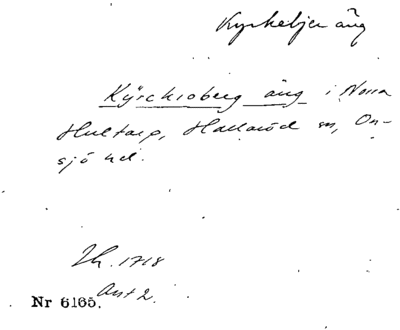 Kyrkebjer äng
Kÿrckioberg äng i Norra
Hultarp, Hallaröd sn, On-
sjö hd.
Jb. 1718
Ant 2.
Nr 6165.